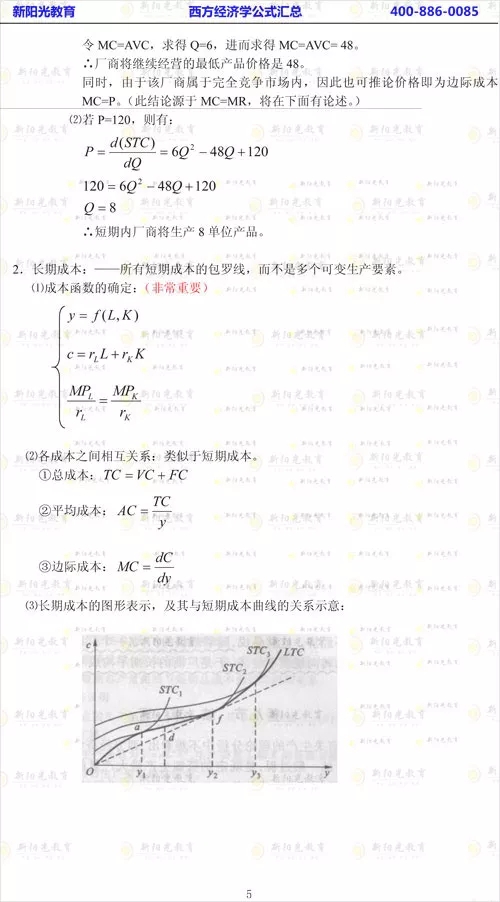 新阳光教育 西方经济学公式汇总 400-886-0085
令 MC=AVC，求得 Q=6，进而求得 MC=AVC= 48。
∴厂商将继续经营的最低产品价格是 48。
同时，由于该厂商属于完全竞争市场内，因此也可推论价格即为边际成本
MC=P。（此结论源于 MC=MR，将在下面有论述。）
⑵若 P=120，则有：
P = d(STC)/dQ = 6Q² − 48Q + 120
120 = 6Q² − 48Q + 120
Q = 8
∴短期内厂商将生产 8 单位产品。
2．长期成本：——所有短期成本的包罗线，而不是多个可变生产要素。
⑴成本函数的确定：（非常重要）
y = f(L, K)
c = r_L L + r_K K
MP_L/r_L = MP_K/r_K
⑵各成本之间相互关系：类似于短期成本。
①总成本：TC = VC + FC
②平均成本：AC = TC/y
③边际成本：MC = dC/dy
⑶长期成本的图形表示，及其与短期成本曲线的关系示意：
c
STC₃ LTC
STC₂
STC₁
a d f
O y₁ y₂ y₃ y
5